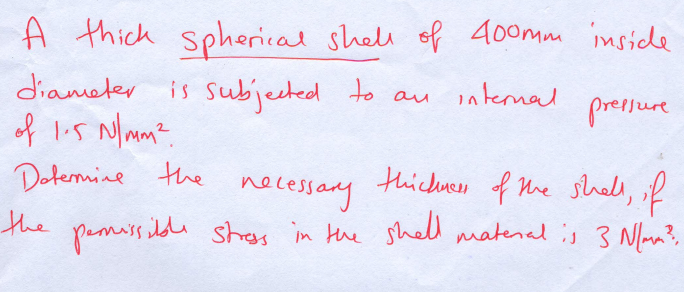 A thick spherical shell of 400mm inside
diameter is subjected to an internal pressure
of 1.5 N/mm².
Determine the necessary thickness of the shell, if
the permissible stress in the shell material is 3 N/mm².